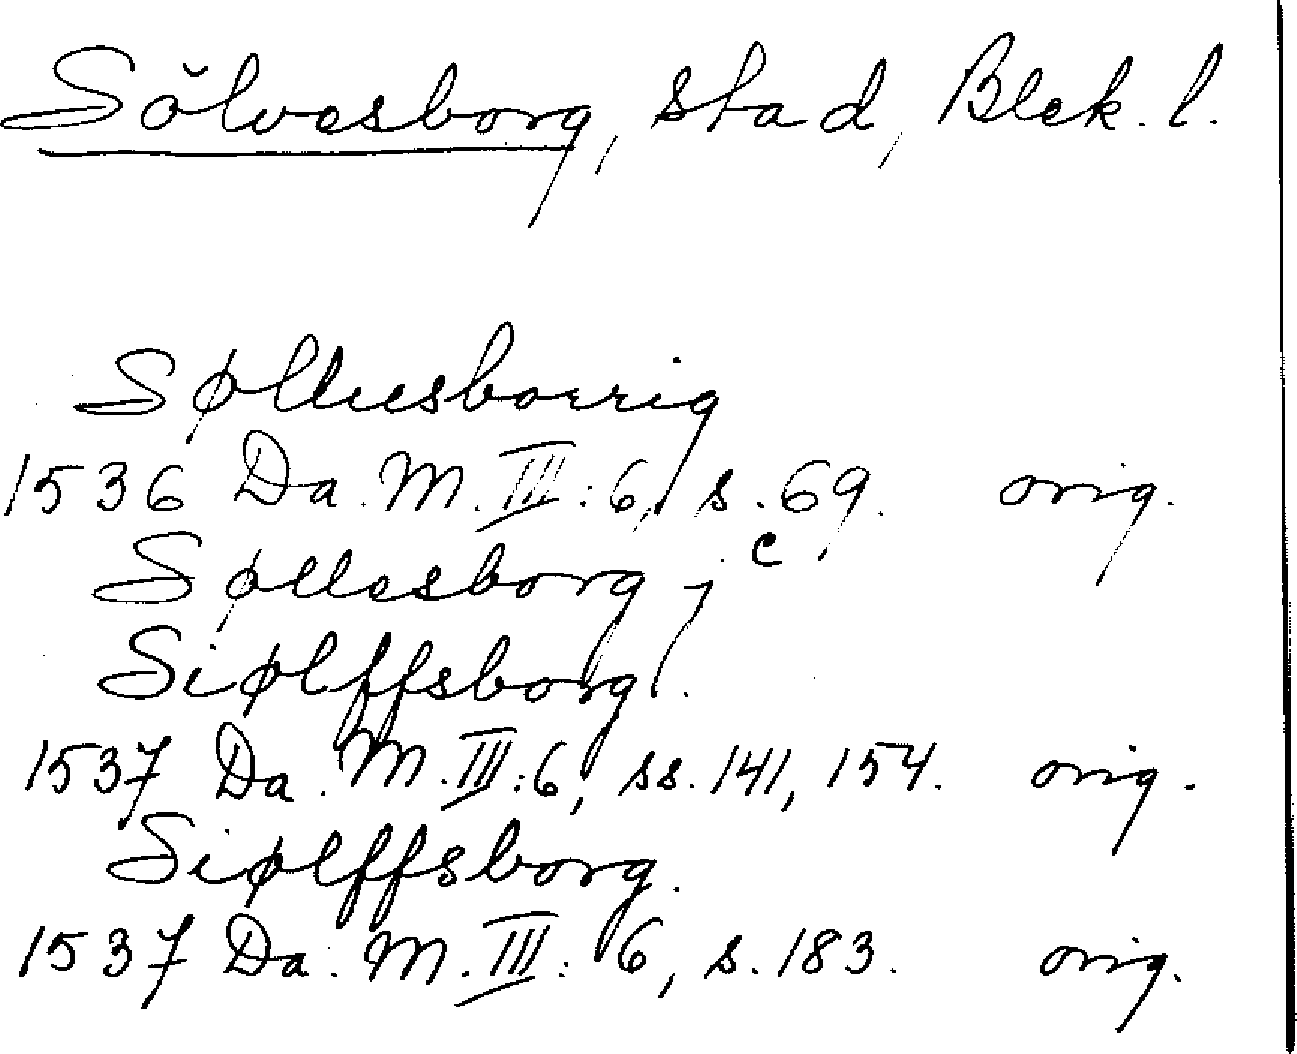 Sölvesborg, stad, Blek. l.
Sølluesborrig
1536 Da. M. III: 6, s. 69. orig.
Søllesborg, c
Siølffsborg.
1537 Da. M. III: 6, ss. 141, 154. orig.
Siølffsborg.
1537 Da. M. III: 6, s. 183. orig.